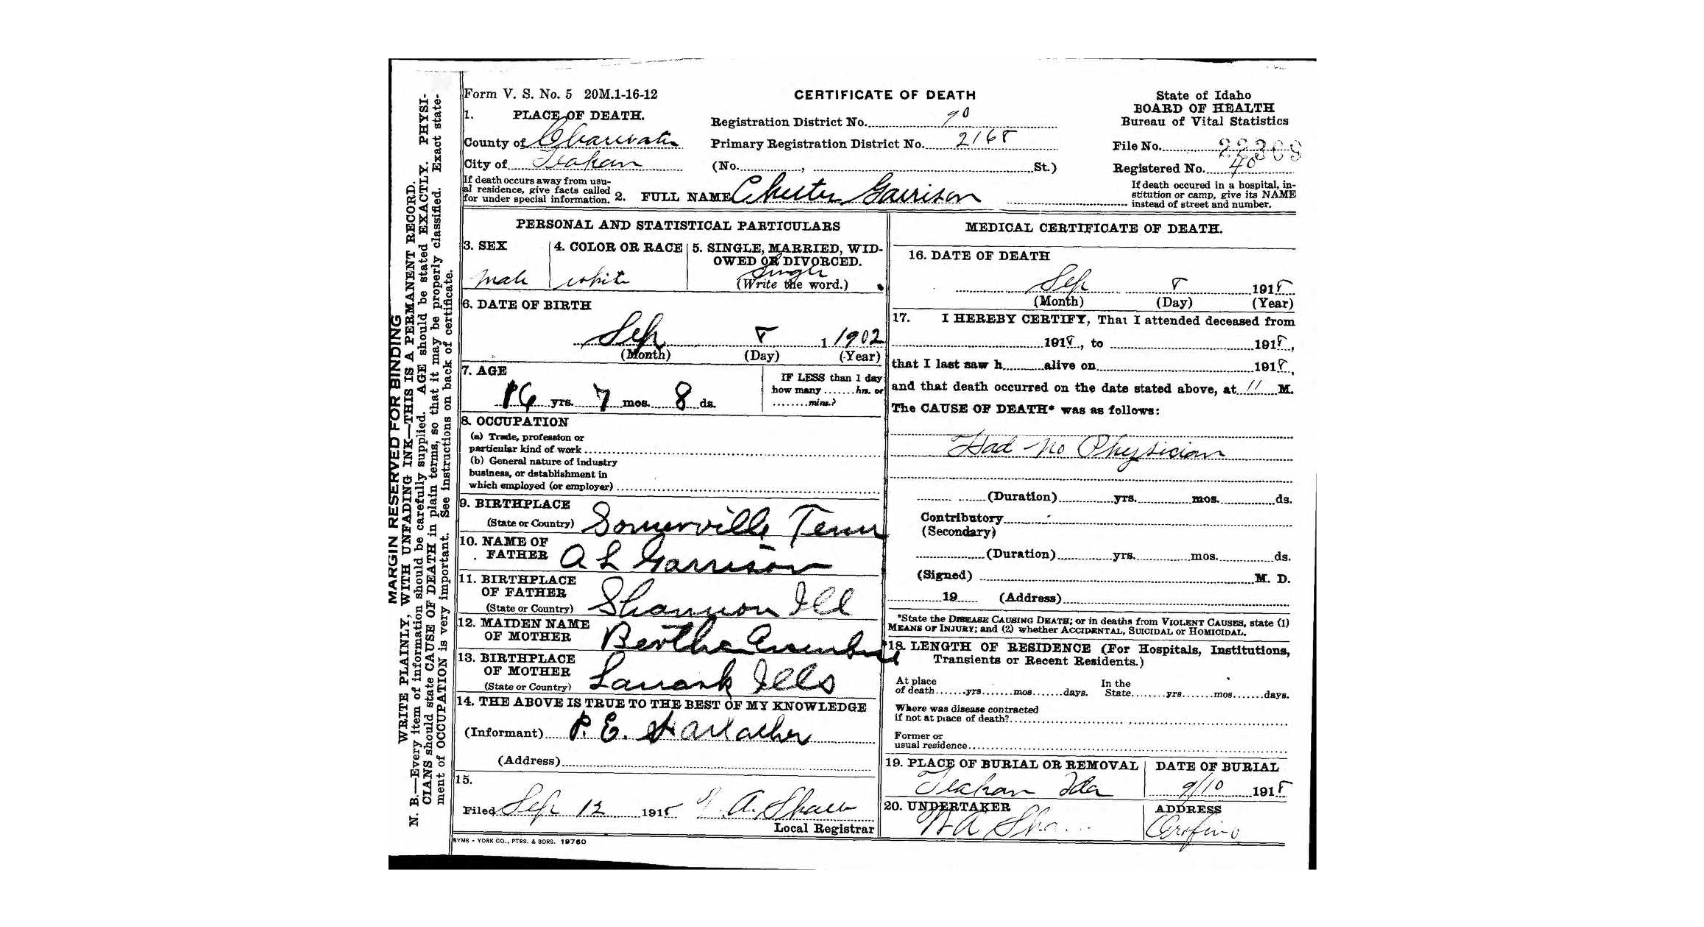 Form V. S. No. 5 20M.1-16-12
CERTIFICATE OF DEATH
State of Idaho
BOARD OF HEALTH
Bureau of Vital Statistics
1. PLACE OF DEATH.
County of Clearwater
City of Teakean
Registration District No. 90
Primary Registration District No. 2168
(No. , St.)
File No.
Registered No. 40
If death occurs away from usu-
al residence, give facts called
for under special information.
2. FULL NAME Chester Garrison
If death occured in a hospital, in-
stitution or camp, give its NAME
instead of street and number.
PERSONAL AND STATISTICAL PARTICULARS
3. SEX
male
4. COLOR OR RACE
white
5. SINGLE, MARRIED, WID-
OWED OR DIVORCED.
Single
(Write the word.)
6. DATE OF BIRTH
Sep 8 1 1902
(Month) (Day) (Year)
7. AGE
16 yrs. 7 mos. 8 ds.
IF LESS than 1 day
how many hrs. or
mins.?
8. OCCUPATION
(a) Trade, profession or
particular kind of work
(b) General nature of industry
business, or dstablishment in
which employed (or employer)
9. BIRTHPLACE
(State or Country) Somerville Tenn
10. NAME OF
FATHER A L Garrison
11. BIRTHPLACE
OF FATHER
(State or Country) Shannon Ill
12. MAIDEN NAME
OF MOTHER Bertha
13. BIRTHPLACE
OF MOTHER
(State or Country) Lanark Ills
14. THE ABOVE IS TRUE TO THE BEST OF MY KNOWLEDGE
(Informant) P. E.
(Address)
15.
Filed Sep 12 1918 A. Shaw
Local Registrar
SYMS - YORK CO., PTRS. & BDRS. 19760
MEDICAL CERTIFICATE OF DEATH.
16. DATE OF DEATH
Sep 8 1918
(Month) (Day) (Year)
17. I HEREBY CERTIFY, That I attended deceased from
1918, to 1918,
that I last saw h alive on 1918,
and that death occurred on the date stated above, at 11 M.
The CAUSE OF DEATH* was as follows:
Had no Physician
(Duration) yrs. mos. ds.
Contributory
(Secondary)
(Duration) yrs. mos. ds.
(Signed) M. D.
19 (Address)
*State the DISEASE CAUSING DEATH; or in deaths from VIOLENT CAUSES, state (1)
MEANS OF INJURY; and (2) whether ACCIDENTAL, SUICIDAL or HOMICIDAL.
18. LENGTH OF RESIDENCE (For Hospitals, Institutions,
Transients or Recent Residents.)
At place
of death yrs mos days.
In the
State yrs mos days.
Where was disease contracted
if not at place of death?
Former or
usual residence
19. PLACE OF BURIAL OR REMOVAL
Teakean Ida
DATE OF BURIAL
9/10 1918
20. UNDERTAKER
ADDRESS
Orofino
MARGIN RESERVED FOR BINDING
WRITE PLAINLY, WITH UNFADING INK—THIS IS A PERMANENT RECORD.
N. B.—Every item of information should be carefully supplied. AGE should be stated EXACTLY. PHYSI-
CIANS should state CAUSE OF DEATH in plain terms, so that it may be properly classified. Exact state-
ment of OCCUPATION is very important. See instructions on back of certificate.